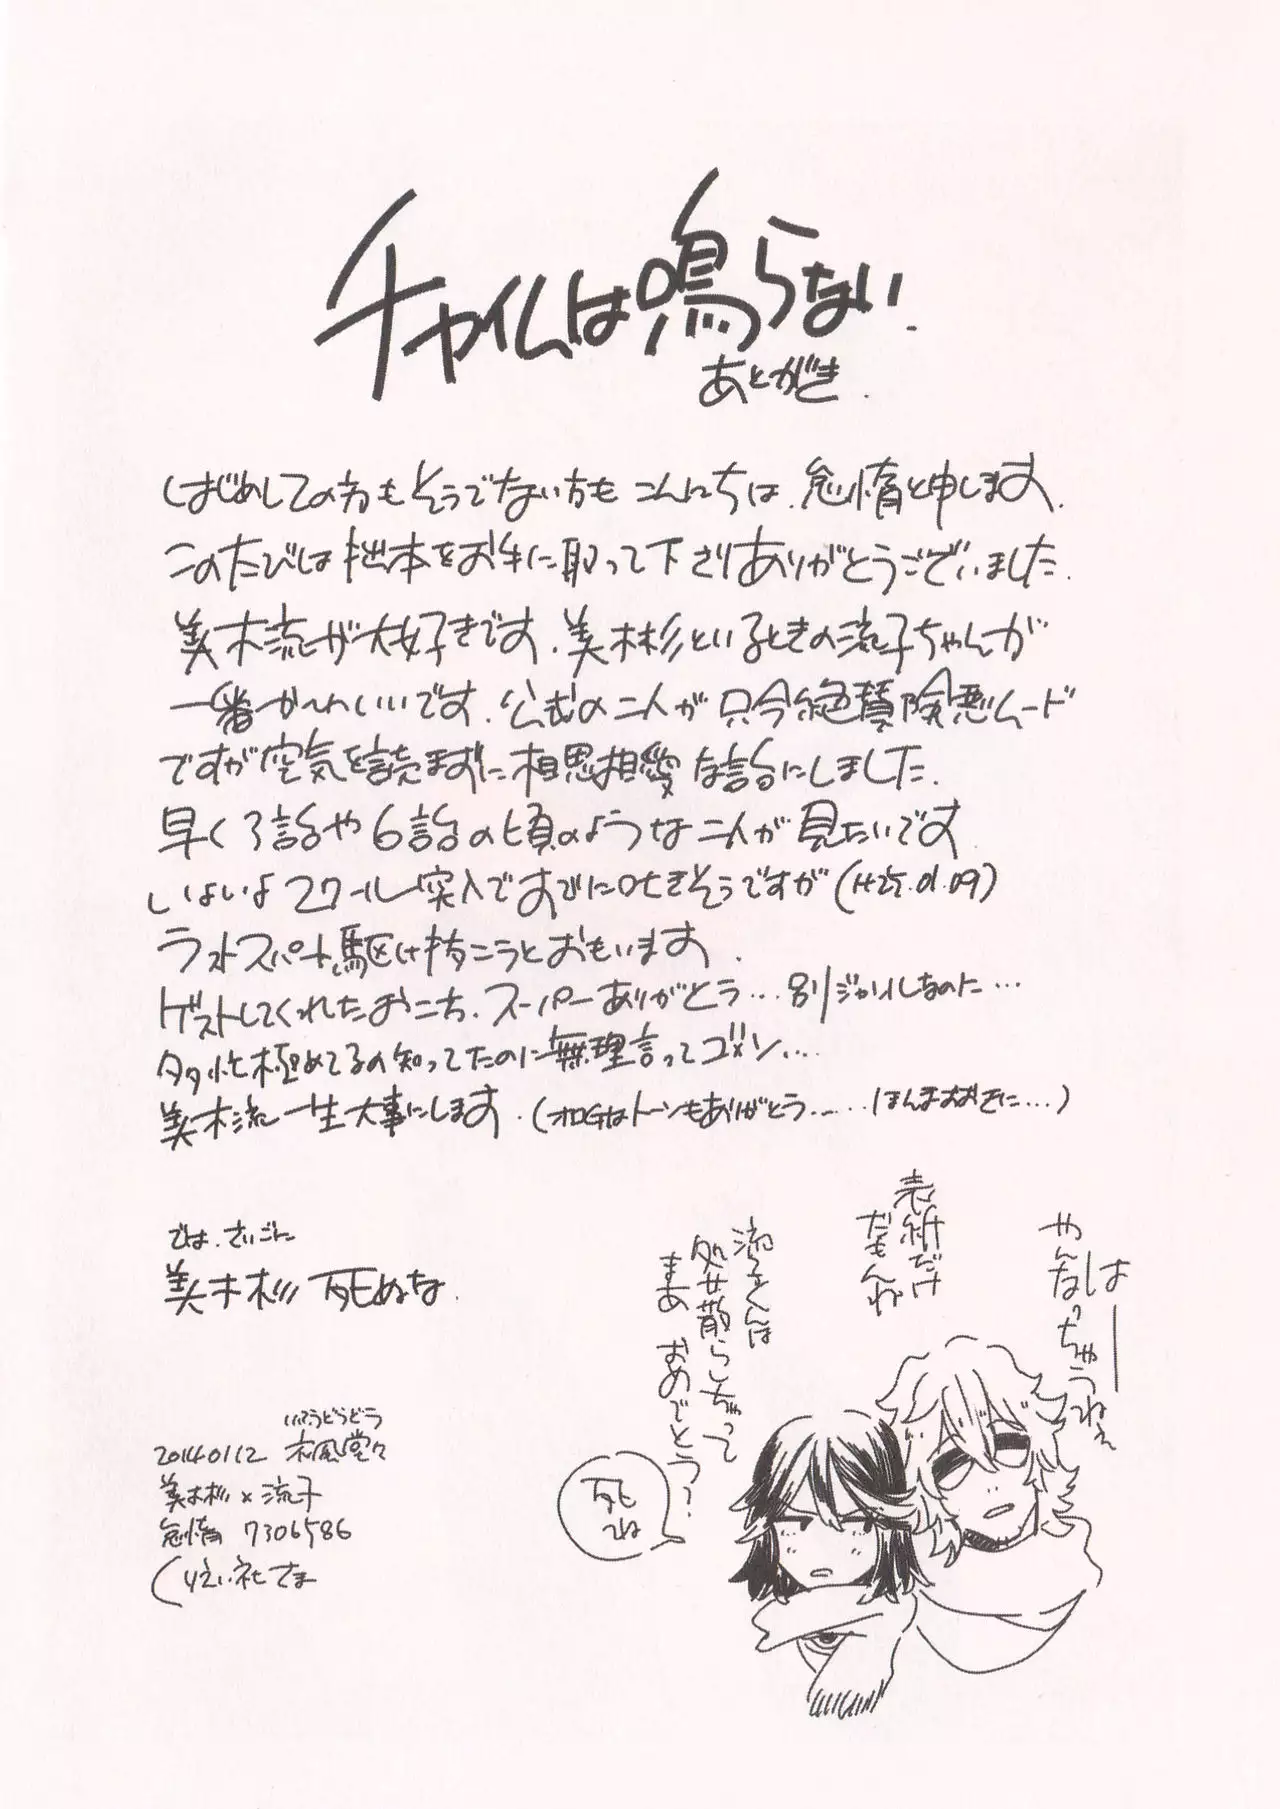 チャイムは鳴らない.
あとがき.
はじめしての方もそうでない方も こんにちは. 怠惰と申します.
このたびは拙本をお手に取って下さりありがとうございました.
美木流が大好きです. 美木杉といるときの流子ちゃんが
一番かーわいいです. 公式の二人が只今絶賛険悪ムード
ですが空気を読まずに相思相愛な話にしました.
早く3話や6話の頃のような二人が見たいです
いよいよ2クール突入ですでに吐きそうですが(H25.01.09)
ラストスパート駆け抜こうとおもいます.
ゲストしてくれたおこち. スーパーありがとう... 別ジャンルなのに...
多忙極めてるの知ってたのに無理言ってゴメン....
美木流一生大事にします. (オロチはトーンもありがとう..... ほんまおおきに...)
では. さいごに
美木杉 死ぬな.
はー
やんなっちゃうねぇ
表紙だけ
だもんね
流子くんは
処女散らしちゃって
まあ おめでとう?
死
ね
いふうどうどう
20140112 木風堂々
美木杉×流子
怠惰 7306586
くりえい社さま